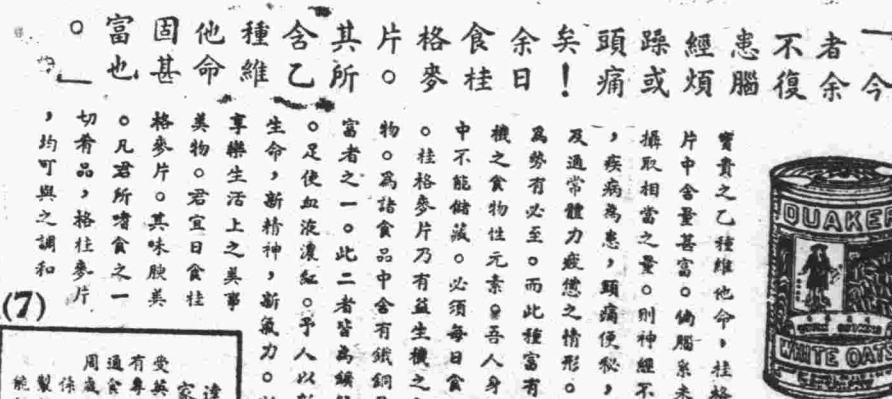 「今
者余
不復
患腦
經煩
躁或
頭痛
矣！
余日
食桂
格麥
片。
其所
含乙
種維
他命
固甚
富也
。」
QUAKE
WHITE OATS
寶貴之乙種維他命，桂格
片中含量甚富。倘腦系未
攝取相當之量。則神經不
，疾病為患，頭痛便秘，
及通常體力疲憊之情形。
為勢有必至。而此種富有
機之食物性元素。吾人身
中不能儲藏。必須每日食
。桂格麥片乃有益生機之
物。為諸食品中含有鐵銅
富者之一。此二者皆為
。足使血液濃紅。予人以
生命，新精神，新氣力。
享樂生活上之美事
美物。君宜日食桂
格麥片。其味腴美
。凡君所嗜食之一
切肴品，格桂麥片
，均可與之調和
(7)
達
家
受英
有專
通食
周歲
係
製
能